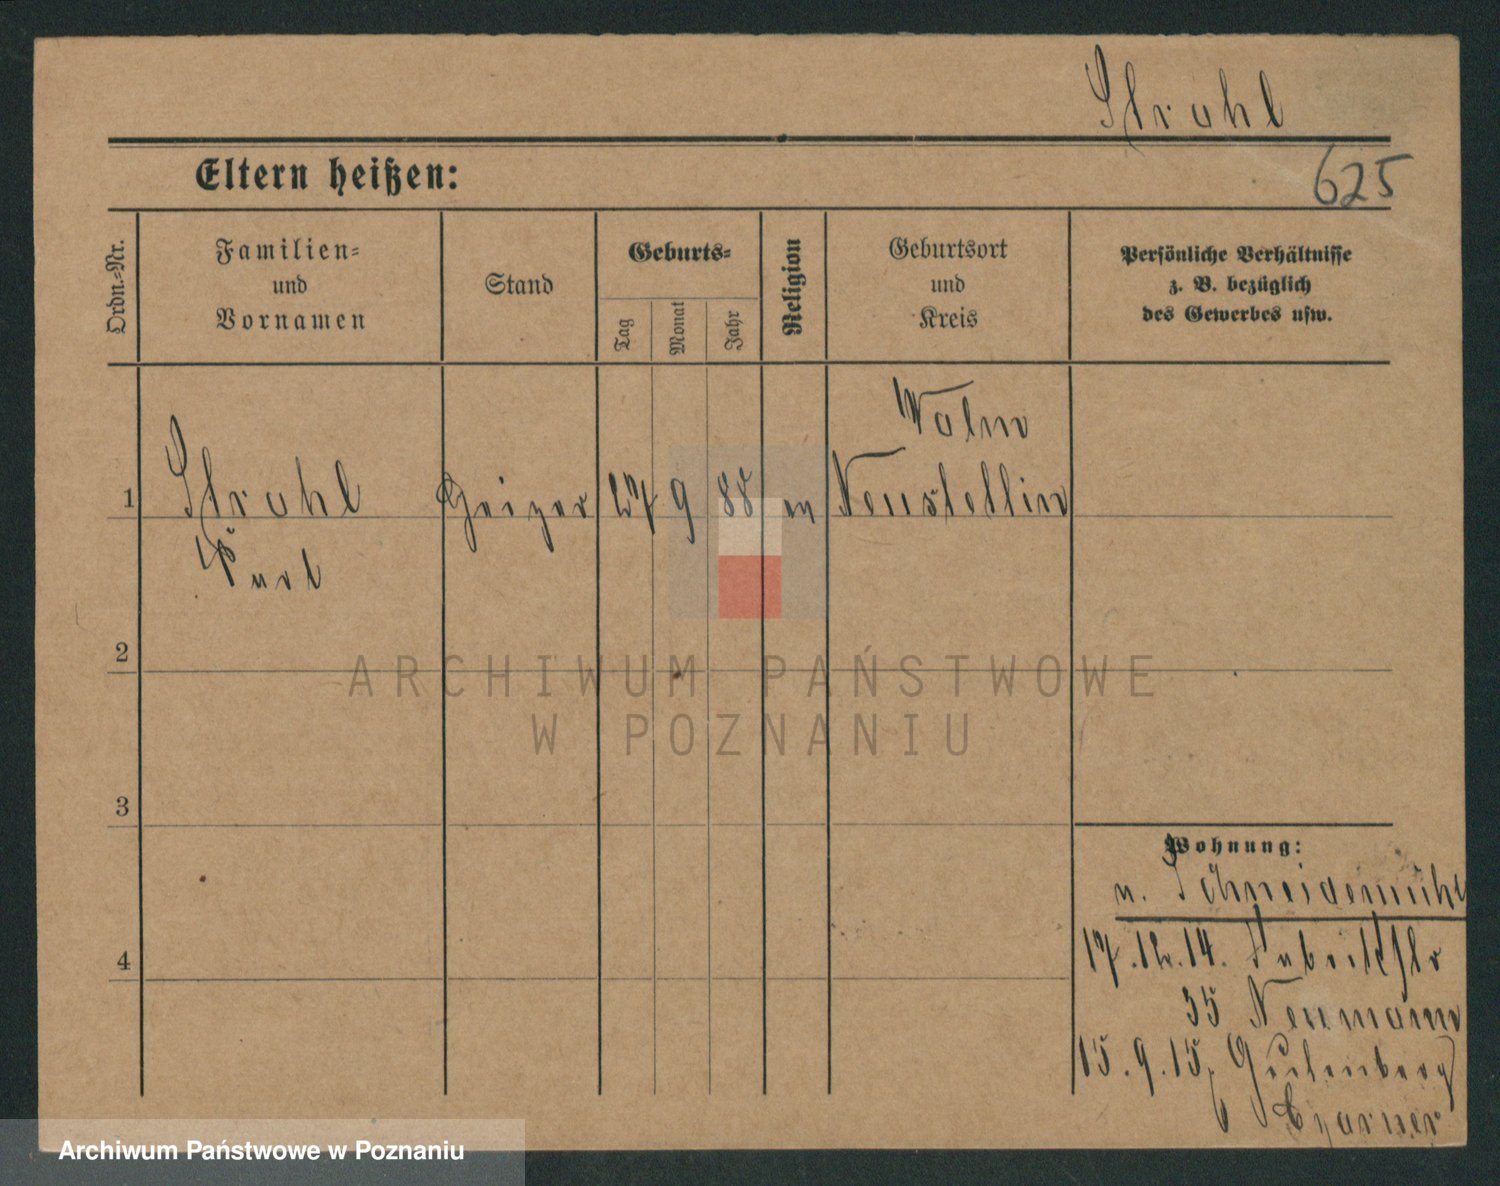 Strohl
625
Eltern heißen:
Ordn.-Nr.
Familien-
und
Vornamen
Stand
Geburts-
Tag
Monat
Jahr
Religion
Geburtsort
und
Kreis
Persönliche Verhältnisse
z. B. bezüglich
des Gewerbes usw.
1
Strohl
Heizer
27
9
85
Neustettin
2
3
4
ARCHIWUM PAŃSTWOWE
W POZNANIU
Wohnung:
n. Schneidemühl
17.12.14.
35 Neumann
15.9.15.
Archiwum Państwowe w Poznaniu